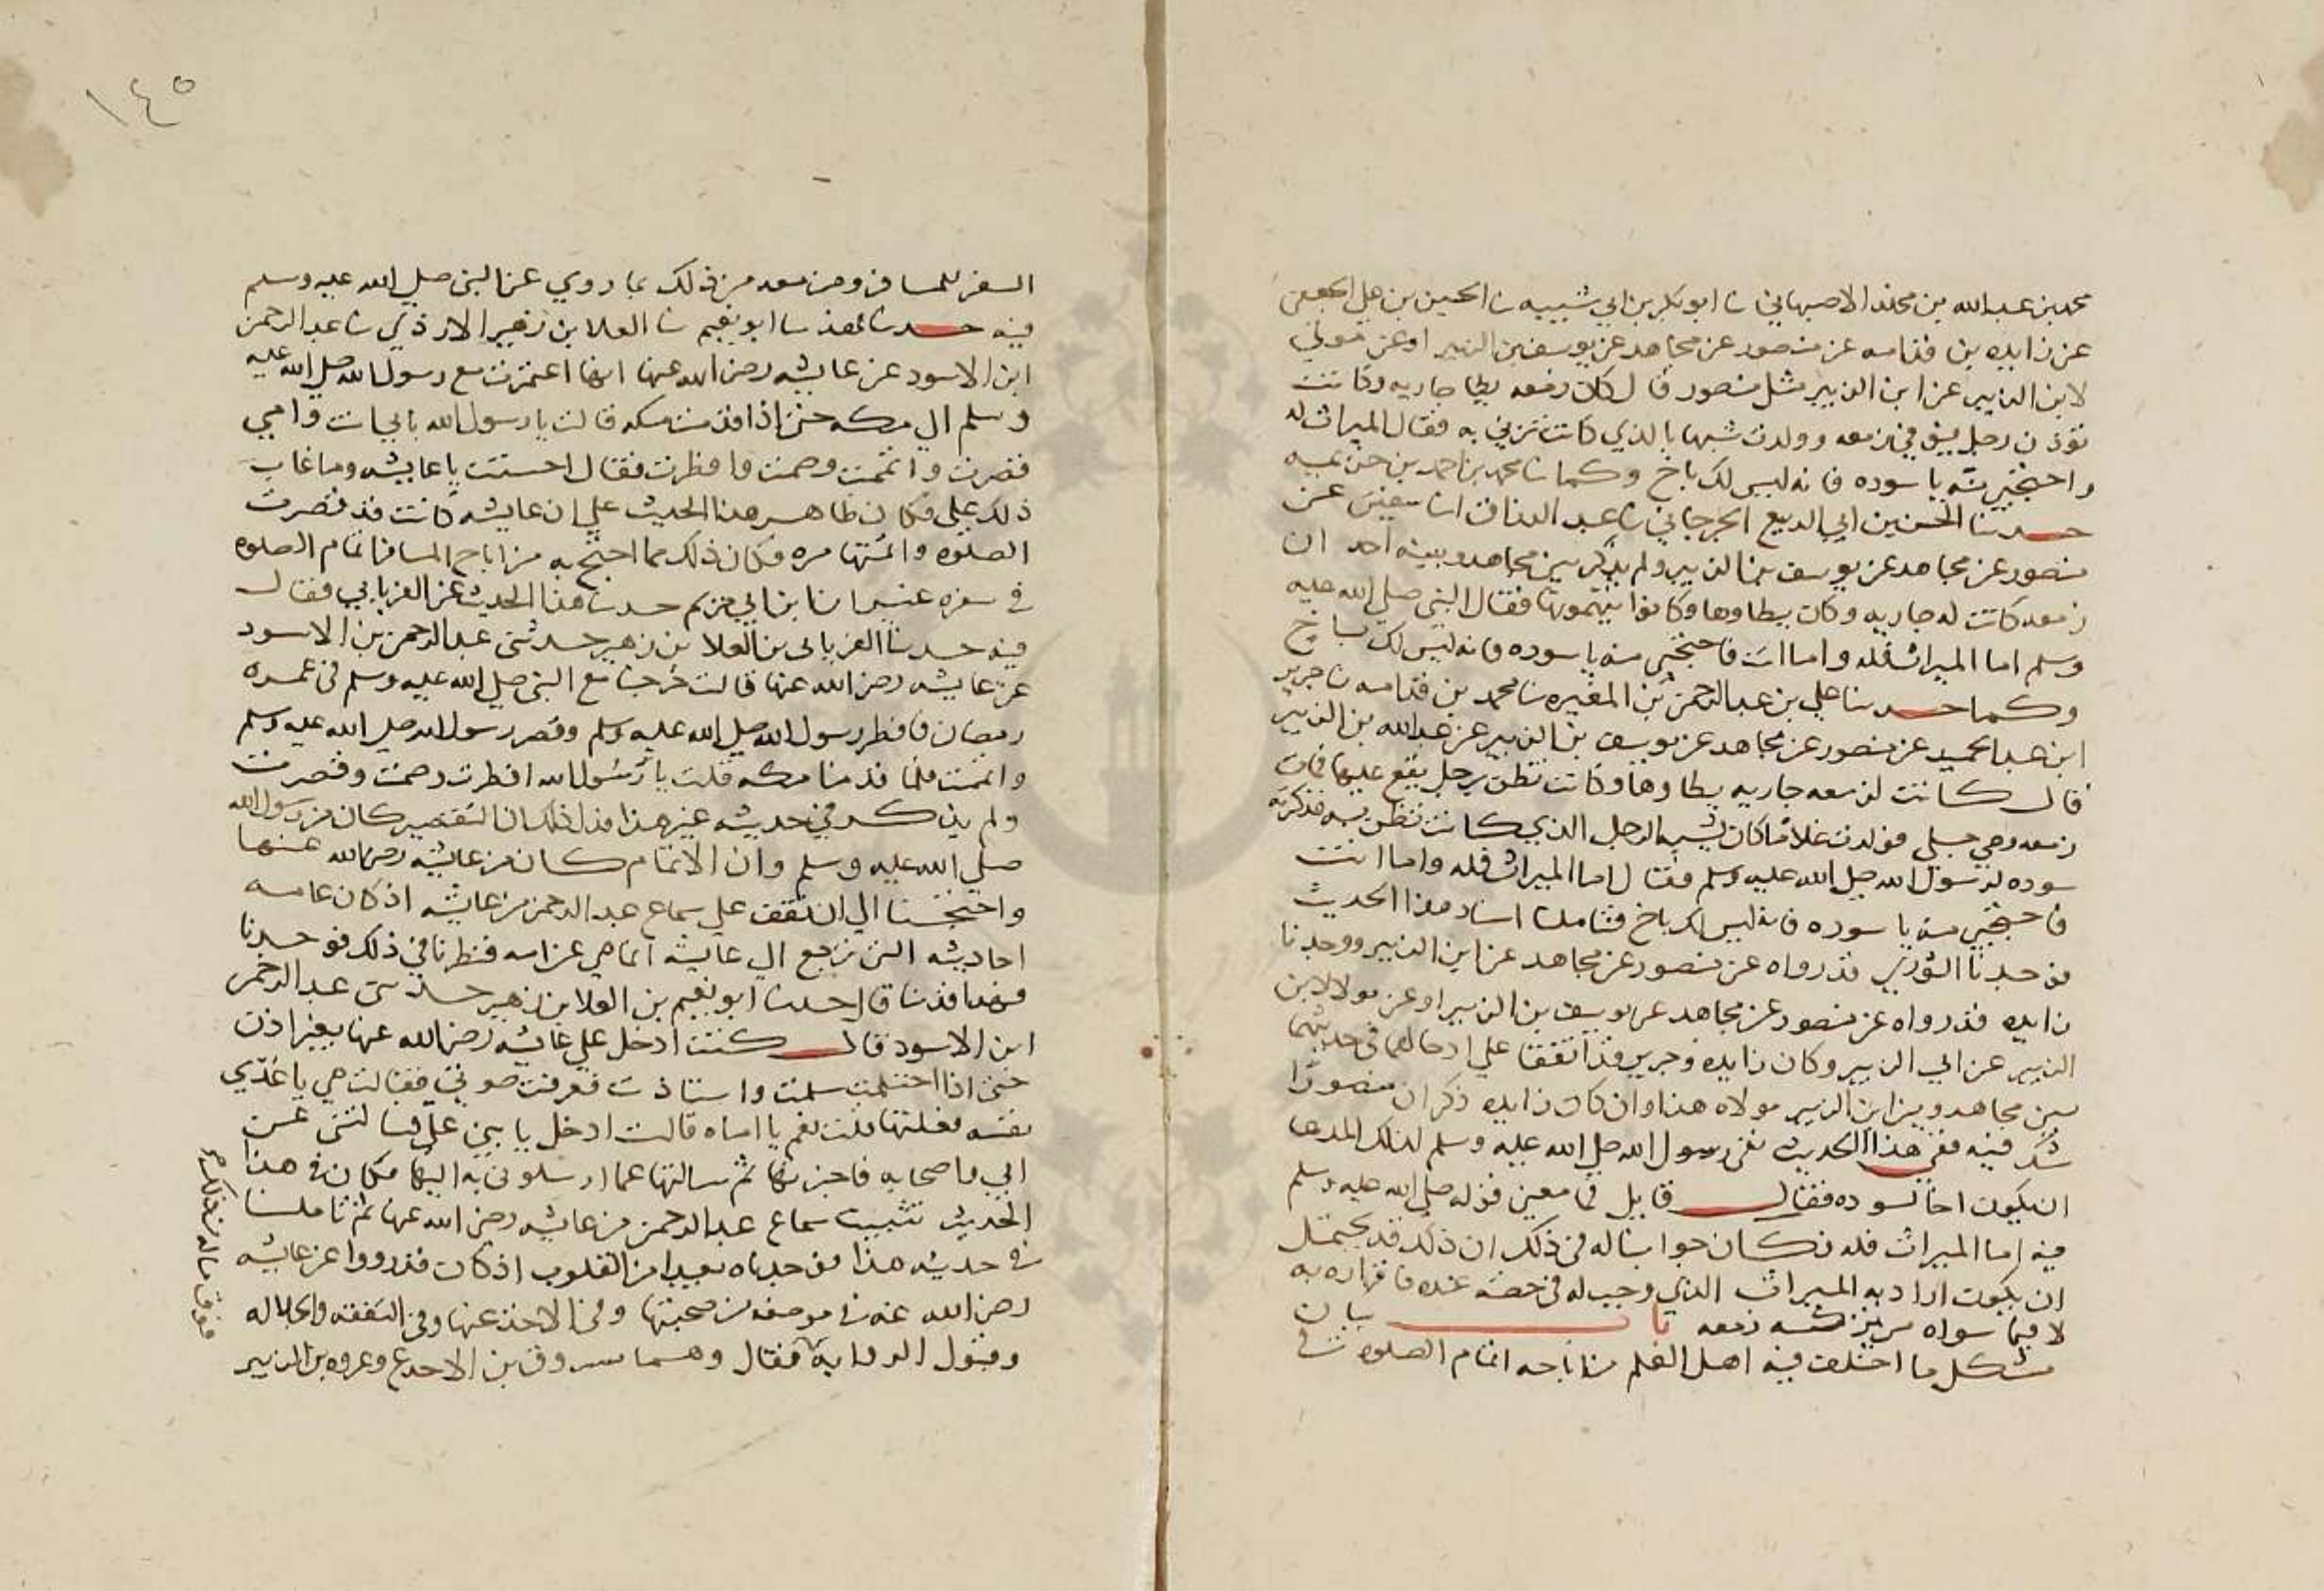 محمد بن عبد الله بن مخلد الاصبهاني نا ابو بكر بن ابي شيبه نا الحسين بن علي الجعفي
عن زايده بن قدامه عن منصور عن مجاهد عن يوسف بن الزبير او عن مولي
لابن الزبير عن ابن الزبير مثل منصور قال كان زمعه يطا جاريه وكانت
رجل فمات زمعه وولدت شبها بالذي كانت تزني به فقال الميراث له
واحتجبي منه يا سوده فانه ليس لك باخ وكما نا محمد بن احمد بن
حدثنا الحسن بن ابي الربيع الجرجاني نا عبد الرزاق انا سفين عن
منصور عن مجاهد عن يوسف بن الزبير ولم يذكر بين مجاهد وبينه احد ان
زمعه كانت له جاريه وكان يطاوها وكانوا يتهمونها فقال النبي صلي الله عليه
وسلم اما الميراث فله واما انت فاحتجبي منه يا سوده فانه ليس لك باخ
وكما حدثنا علي بن عبد الرحمن بن المغيره نا محمد بن قدامه نا جرير
ابن عبد الحميد عن منصور عن مجاهد عن يوسف بن الزبير عن عبد الله بن الزبير
قال كانت لزمعه جاريه يطاوها وكانت تظن برجل يقع عليها فمات
زمعه وهي حبلي فولدت غلاما كان يشبه الرجل الذي كانت تظن به فذكرته
سوده لرسول الله صلي الله عليه وسلم فقال اما الميراث فله واما انت
فاحتجبي منه يا سوده فانه ليس لك باخ فتاملنا اسناد هذا الحديث
فوجدنا الثوري قد رواه عن منصور عن مجاهد عن ابن الزبير ووجدنا
زايده قد رواه عن منصور عن مجاهد عن يوسف بن الزبير او عن مولا لابن
الزبير عن ابي الزبير وكان زايده وجرير قد اتفقا علي ادخالهما في حديثهما
بين مجاهد وبين ابن الزبير مولاه هذا وان كان زايده ذكر ان منصورا
شك فيه ففي هذا الحديث نفي رسول الله صلي الله عليه وسلم لذلك المدعا
ان يكون اخا لسوده فقال قايل فما معين قوله صلي الله عليه وسلم
فيه اما الميراث فله فكان جوابنا له في ذلك ان ذلك قد يحتمل
ان يكون اراد به الميراث الذي وجب له في حصه عبد باقراره به
لا فيما سواه من تركه زمعه باب بيان
مشكل ما اختلف فيه اهل العلم من اباحه اتمام الصلوه في
١٤٥
السفر للمسافر ومن منعه من ذلك بما روي عن النبي صلي الله عليه وسلم
فيه حدثنا فهد نا ابو نعيم نا العلا بن زهير الازدي نا عبد الرحمن
ابن الاسود عن عايشه رضي الله عنها انها اعتمرت مع رسول الله صلي الله عليه
وسلم الي مكه حتي اذا قدمت مكه قالت يا رسول الله بابي انت وامي
قصرت واتممت وصمت وافطرت فقال احسنت يا عايشه وما عاب
ذلك علي فكان ظاهر هذا الحديث علي ان عايشه كانت قد قصرت
الصلوه واتمتها مره فكان ذلك مما احتج به من اباح المسافر اتمام الصلوه
في سفره غير ان ابن ابي مريم حدثنا هذا الحديث عن الفريابي فقال
فيه حدثنا الفريابي بن العلا بن زهير حدثني عبد الرحمن بن الاسود
عن عايشه رضي الله عنها قالت خرجت مع النبي صلي الله عليه وسلم في عمره
رمضان فافطر رسول الله صلي الله عليه وسلم وقصر رسول الله صلي الله عليه وسلم
واتممت فلما قدمنا مكه قلت يا رسول الله افطرت وصمت وقصرت
ولم يذكر في حديثه غير هذا فدل ذلك ان التقصير كان من رسول الله
صلي الله عليه وسلم وان الاتمام كان من عايشه رضي الله عنها
واحتجنا الي ان نقف علي سماع عبد الرحمن من عايشه اذ كان عامه
احاديثه التي ترجع الي عايشه انما هي عن امه فنظرنا في ذلك فوجدنا
فهدا قد نا قال حدثنا ابو نعيم بن العلا بن زهير حدثني عبد الرحمن
ابن الاسود قال كنت ادخل علي عايشه رضي الله عنها بغير اذن
حتي اذا احتلمت سلمت واستاذنت فعرفت صوتي فقالت هي يا عدي
نفسه فعلتها قلت نعم يا اماه قالت ادخل يا بني علي فسالتني عن
ابي واصحابه فاخبرتها ثم سالتها عما ارسلوني به اليها فكان في هذا
الحديث تثبيت سماع عبد الرحمن من عايشه رضي الله عنها ثم تاملنا
في حديثه هذا فوجدناه بعيدا من القلوب اذ كان قد رووا عن عايشه
رضي الله عنه في موضعه من صحبتها وفي الاخذ عنها وفي التفقه والجلاله
وقبول الروايه فقال وهما مسروق بن الاجدع وعروه بن الزبير
فوق ما له من ذلك